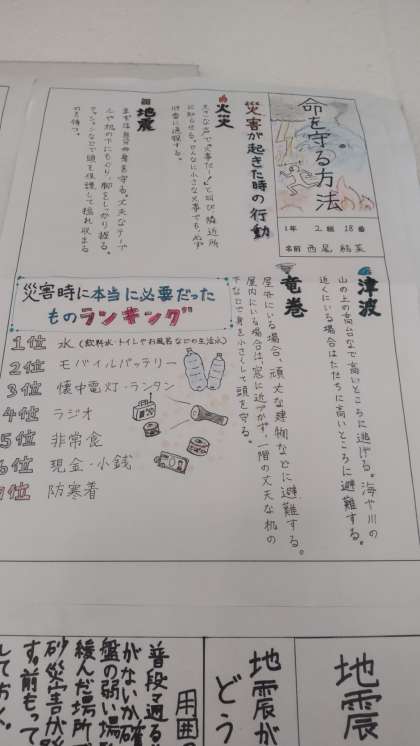 命を守る方法
1年 2組 18番
名前 西尾
災害が起きた時の行動
火災
大きな声で「火事だー！」と叫び隣近所
に知らせる。どんなに小さな火事でも必ず
119番に通報する。
地震
まず自分の身を守る。丈夫なテーブ
ルや机の下にもぐり、脚をしっかり握る。
クッションなどで頭を保護して揺れ収まる
のを待つ。
津波
山の上の高台など高いところに逃げる。海や川の
近くにいる場合はただちに高いところに避難する。
竜巻
屋外にいる場合、頑丈な建物などに避難する。
屋内にいる場合は、窓に近づかず、一階の丈夫な机の
下などで身を小さくして頭を守る。
災害時に本当に必要だった
ものランキング
1位 水(飲料水・トイレやお風呂などの生活水)
2位 モバイルバッテリー
3位 懐中電灯・ランタン
4位 ラジオ
5位 非常食
6位 現金・小銭
位 防寒着
地震
地震が
どう
用囲
普段通る
がないか確
盤の弱い場
緩んだ場所
砂災害が
す。前もって
しておく